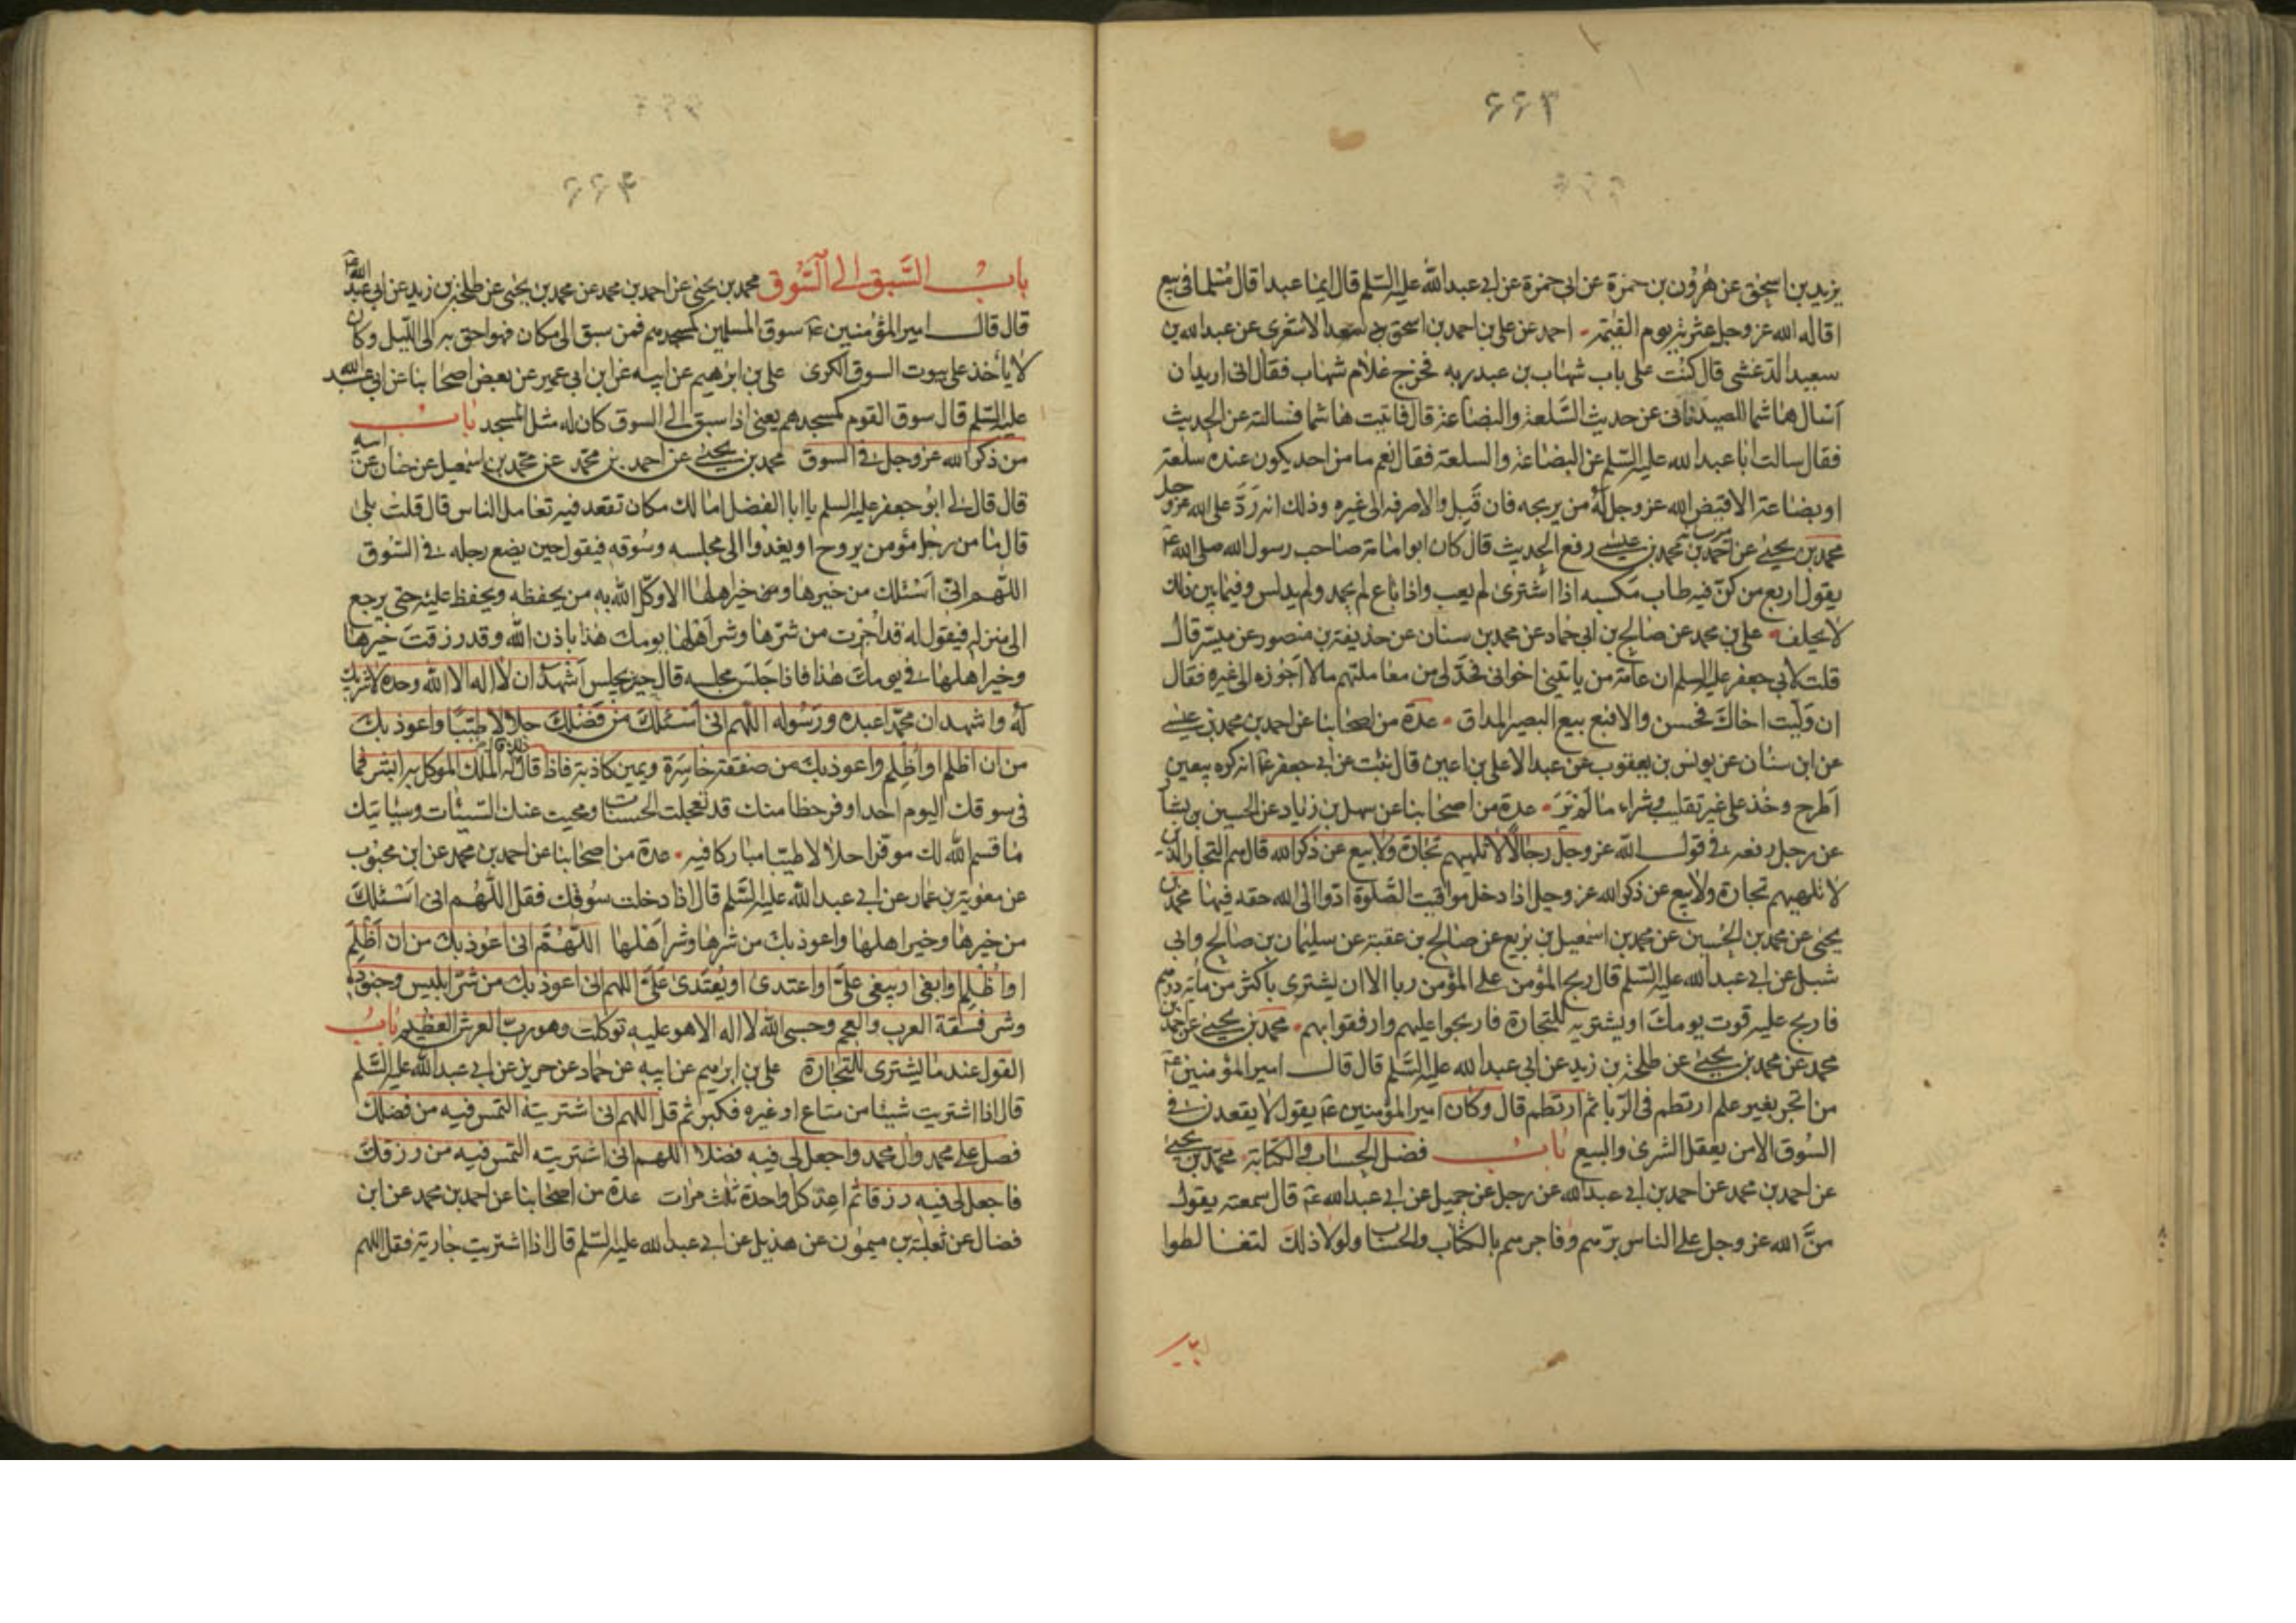 ۶۶۳
يزيد بن اسحٰق عن هٰرون بن حمزة عن ابي حمزة عن ابي عبد الله عليه السّلم قال ايما عبد اقال مُسلما في بيع
اقاله الله عز وجل عثرته يوم القيٰمة احمد عن علي بن احمد بن اسحق بن سعد الاشعري عن عبد الله بن
سعيد الدغشي قال كنت على باب شهاب بن عبد ربه فخرج غلام شهاب فقال اني اريد ان
اسال هاشما الصيدناني عن حديث السّلعة والبضاعة قال فاتيت هاشما فسالته عن الحديث
فقال سالت ابا عبد الله عليه السّلم عن البضاعة والسلعة فقال نعم ما من احد يكون عنده سلعة
او بضاعة الا قيض الله عز وجل لهُ من يربحه فان قَبِل والا صرفه الى غيره وذلك انه رَدَّ على الله عز وجل
محمد بن يحيى عن احمد بن محمد بن عيسى رفع الحديث قال كان ابو امامة صاحب رسول الله صلى الله
يقول اربع من كنّ فيه طاب مكسبه اذا اشترى لم يعب واذا باع لم يحمد ولم يدلس وفيما بين ذلك
لا يحلف علي بن محمد عن صالح بن ابي حماد عن محمد بن سنان عن حذيفة بن منصور عن ميسّر قال
قلت لابي جعفر عليه السلم ان عامة من ياتيني اخواني فحدّ لي من معاملتهم ما لا اجوزه الى غيره فقال
ان وَلّيت اخاك فحسن والا فبع بيع البصير المداق عدة من اصحابنا عن احمد بن محمد بن عيسى
عن ابن سنان عن يونس بن يعقوب عن عبد الاعلى بن اعين قال نبئت عن ابي جعفر ع انه كره بيعين
اَطرح وخُذ على غير تقليب وشراء ما لَم تَرَ عدة من اصحابنا عن سهل بن زياد عن الحسين بن بشار
عن رجل رفعه في قول الله عز وجل رجالاً لا تلهيهم تجارة ولا بيع عن ذكر الله قال هم التجار الذين
لا تلهيهم تجارة ولا بيع عن ذكر الله عز وجل اذا دخل مواقيت الصّلوة ادّوا الى الله حقه فيها محمد بن
يحيى عن محمد بن الحُسين عن محمد بن اسمعيل بن بزيع عن صالح بن عقبة عن سليمان بن صالح وابي
شبل عن ابي عبد الله عليه السّلم قال ربح المؤمن على المؤمن ربا الا ان يشتري باكثر من مائة درهم
فاربح عليه قوت يومك او يشتريه للتجارة فاربحوا عليهم وارفقوا بهم محمد بن يحيى عن احمد بن
محمد عن محمد بن يحيى عن طلحة بن زيد عن ابي عبد الله عليه السّلم قال قال امير المؤمنين ع
من اتجر بغير علم ارتطم في الربا ثم ارتطم قال وكان امير المؤمنين ع يقول لا يقعدن في
السُوق الا من يعقل الشرى والبيع باب فضل الحساب والكتابة محمد بن يحيى
عن احمد بن محمد عن احمد بن ابي عبد الله عن رجل عن جميل عن ابي عبد الله ع قال سمعته يقول
منَّ الله عز وجل على الناس برّهم وفاجرهم بالكتاب والحساب ولولا ذلك لتغالطوا
۶۶۴
باب السَّبق الى السُّوق محمد بن يحيى عن احمد بن محمد عن محمد بن يحيى عن طلحة بن زيد عن ابي عبد الله ع
قال قال امير المؤمنين ع سوق المسلمين كمسجدهم فمن سبق الى مكان فهو احق به الى الليل وكان
لا يأخذ على بيوت السوق الكرى علي بن ابرٰهيم عن ابيه عن ابن ابي عمير عن بعض اصحابنا عن ابي عبد الله
عليه السّلم قال سوق القوم كمسجدهم يعني اذا سبق الى السوق كان له مثل المسجد باب
من ذكر الله عز وجل في السوق محمد بن يحيى عن احمد بن محمد عن محمد بن اسمٰعيل عن حنان عن ابيه
قال قال لي ابو جعفر عليه السلم يا ابا الفضل اما لك مكان تقعد فيه تعامل الناس قال قلت بلى
قال ما من رجل مؤمن يروح او يغدُوا الى مجلسه وسُوقه فيقول حين يضع رجله في السُوق
اللّهم انّي اَسْئلك من خيرها ومن خير اهلها الا وكّل الله به من يحفظه ويحفظ عليه حتى يرجع
الى منزله فيقول له قد اُجرت من شرّها وشر اَهْلها يومك هذا باذن الله وقد رزقتَ خيرها
وخير اهلها في يومك هذا فاذا جَلَسَ مجلسه قال حين يجلس اَشهد ان لا اله الا الله وحده لا شريك
لهُ واشهد ان محمدا عبده ورَسُوله اللّهم اني اَسْئلك من فَضْلك حلالا طيّبا واعوذ بك
من ان اَظلم او اُظلم واعوذ بك من صفقة خاسِرة ويمين كاذبة فاذا قال ذلك قال له الملك الموكل به ابشر فما
في سوقك اليوم احد اوفر حظا منك قد تعجلت الحسنات ومحيت عنك السّيئات وسياتيك
ما قسم الله لك موقرا حلالا طيّبا مباركا فيه عدة من اصحابنا عن احمد بن محمد عن ابن محبوب
عن معوٰية بن عمار عن ابي عبد الله عليه السَّلم قال اذا دخلت سُوقك فقل اللّهُم اني اَسْئلك
من خيرها وخير اهلها واعوذ بك من شرها وشر اَهْلها اللّهُمّ اني اعوذ بك من ان اَظلِمَ
او اُظْلم او ابغي او يبغى عليّ او اعتدي او يُعْتَدى عَلَيّ اللهم اني اعوذ بك من شرّ ابليس وجنوده
وشر فسقة العرب والعجم وحسبي الله لا اله الا هو عليه توكلت وهو ربّ العرش العظيم باب
القول عند ما يشترى للتجارة علي بن ابرٰهيم عن ابيه عن حماد عن حريز عن ابي عبد الله عليه السَّلم
قال اذا اشتريت شيئا من متاع او غيره فكبر ثم قل اللهم اني اشتريته التمس فيه من فضلك
فصل على محمد وال محمد واجعل لي فيه فضلا اللهم اني اشتريته التمس فيه من رزقك
فاجعل لي فيه رزقا ثم اعِد كل واحدة ثلث مرات عدة من اصحابنا عن احمد بن محمد عن ابن
فضال عن ثعلبة بن ميمون عن هذيل عن ابي عبد الله عليه السّلم قال اذا اشتريت جارية فقل اللهم